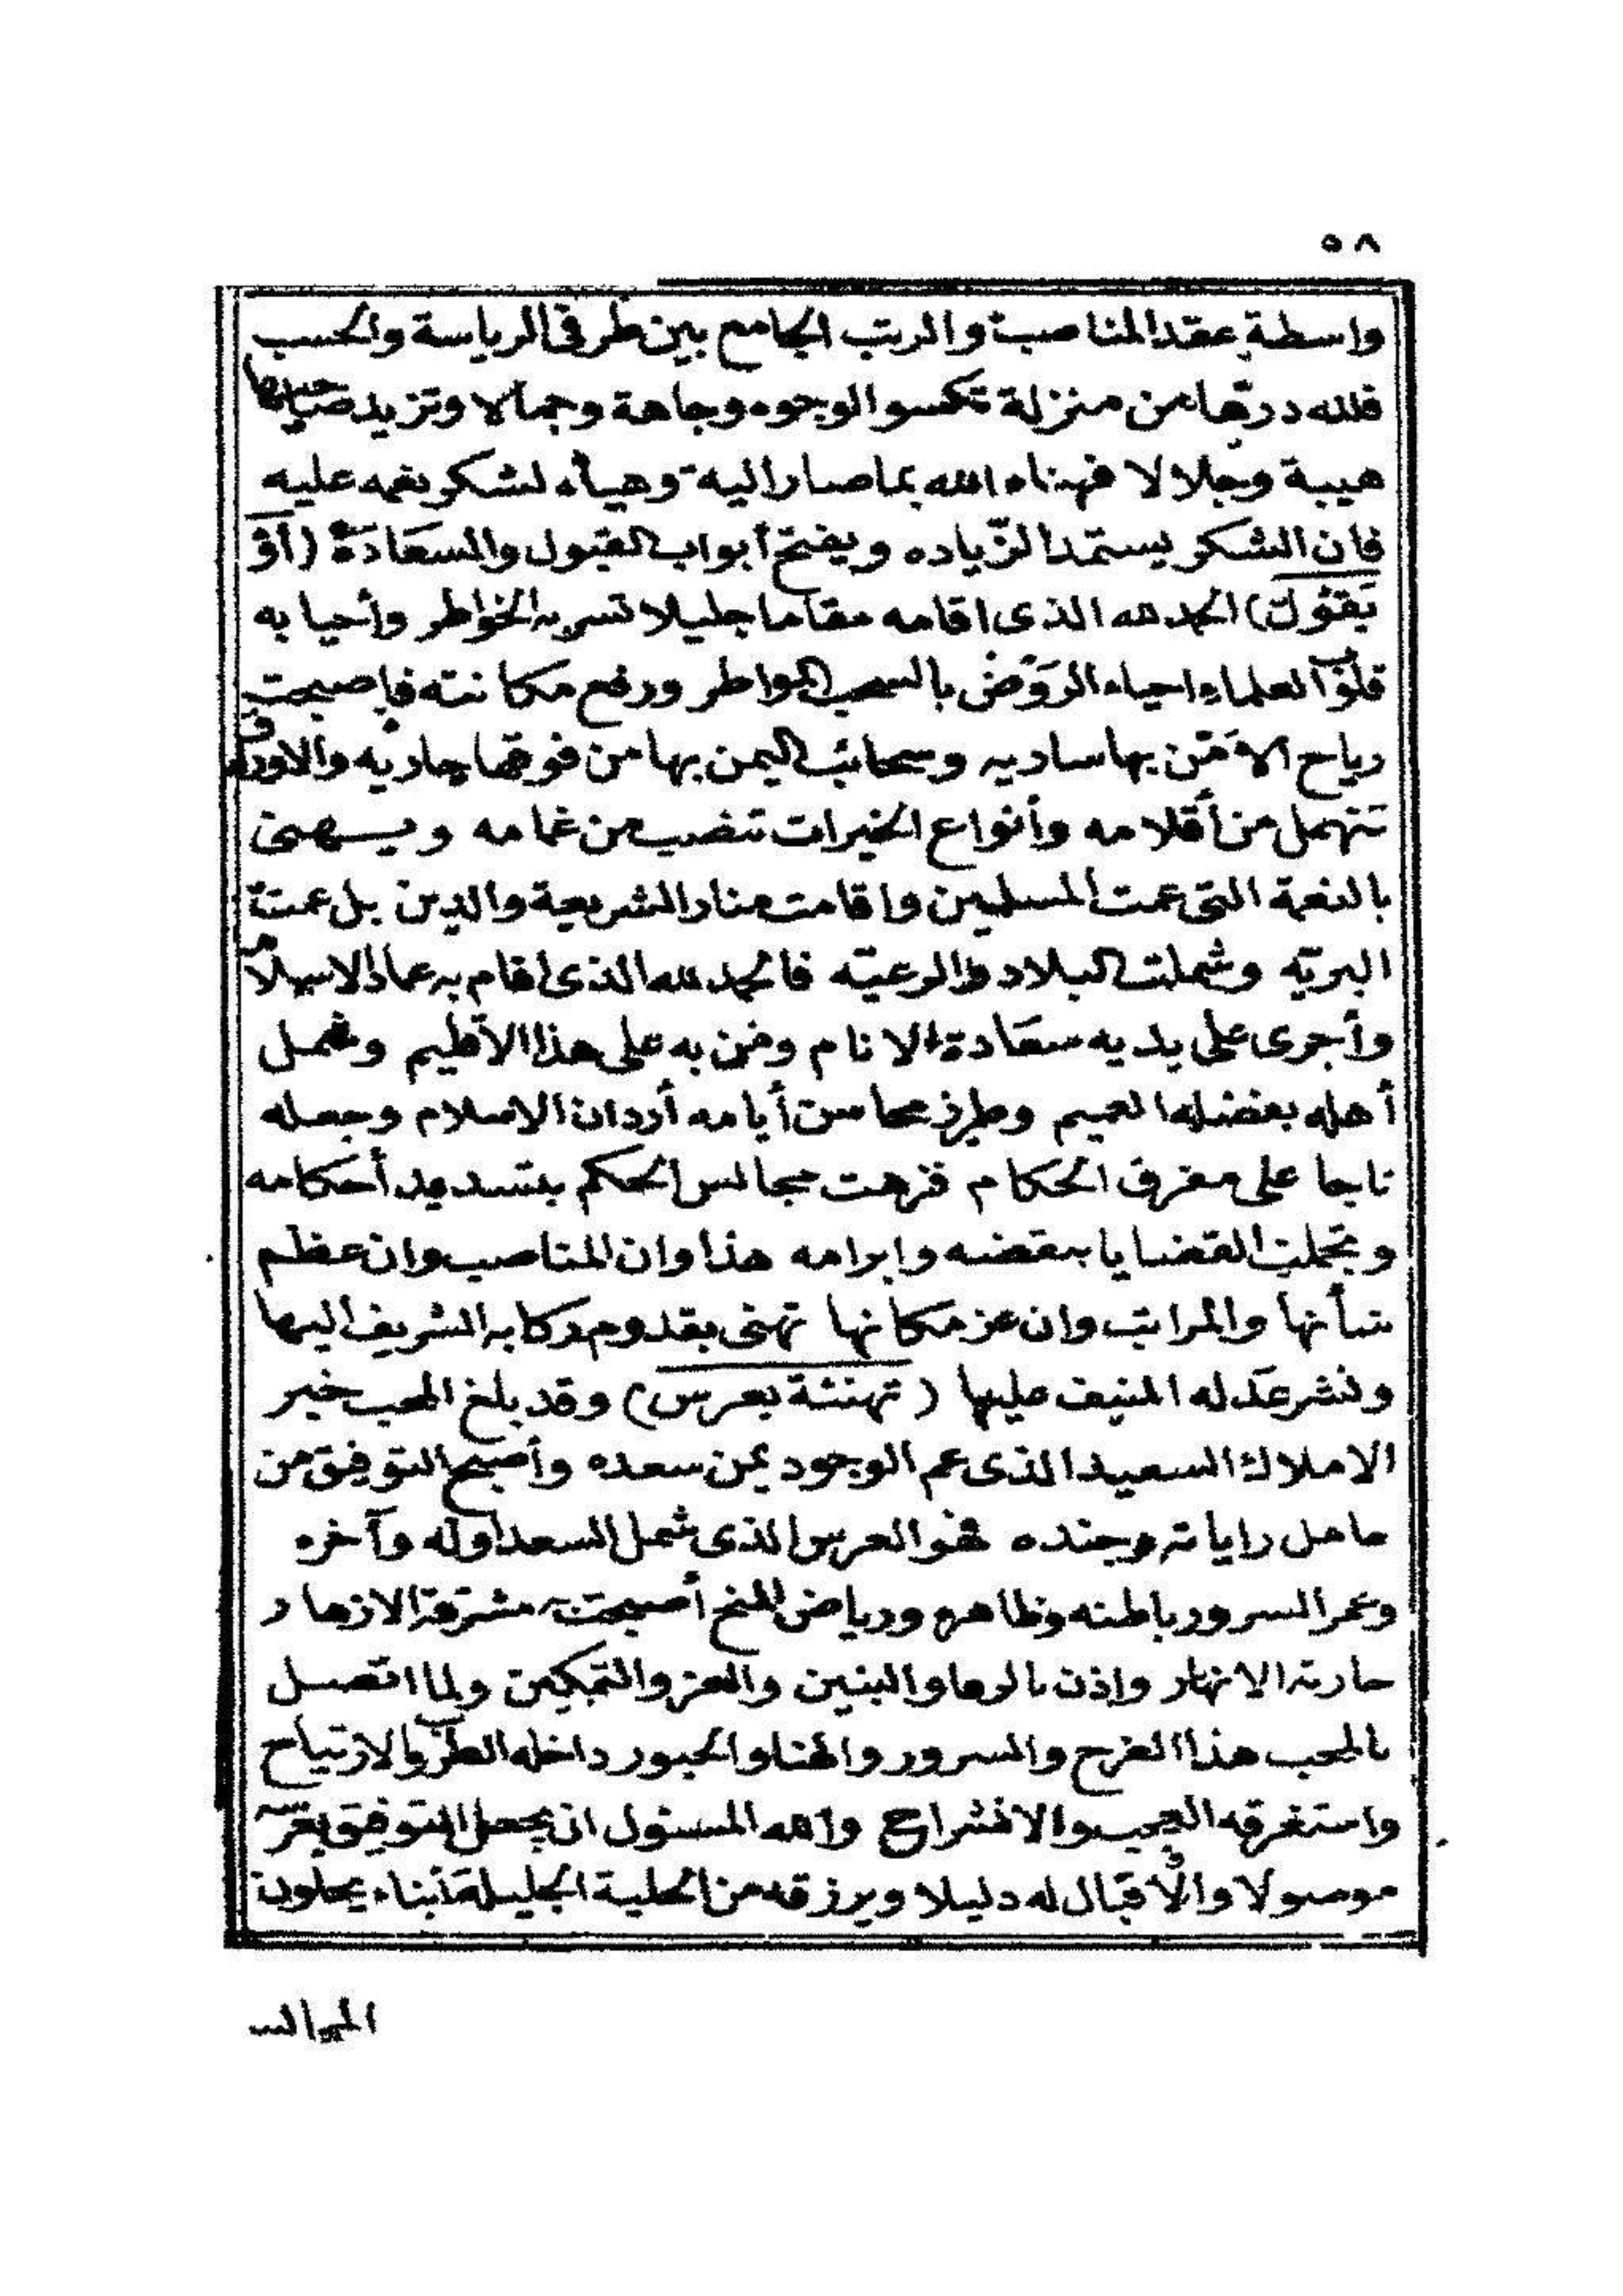 ٥٨
واسطة عقد المناصب والرتب الجامع بين طرفى الرياسة والحسب
فلله درها من منزلة تكسو الوجوه وجاهة وجمالا وتزيد صاحبها
هيبة وجلالا فهناه الله بما صار اليه وهيأه لشكر نعمه عليه
فان الشكر يستمد الزّياده ويفتح أبواب القبول والسعَادَة (أوْ
يَقوُل) الحمد لله الذى اقامه مقاما جليلا تسر به الخواطر وأحيا به
قلوب العلماء احياء الروْض بالسحب المواطر ورفع مكانته فاصبحت
رياح الامْن بها ساريه وسحائب اليمن بها من فوقها جاريه والاوراق
تنهمل من أقلامه وأنواع الخيرات تنصب من غمامه ويسهنى
بالنعمة التى عمت المسلمين واقامت منار الشريعة والدين بل عمت
البريّه وشملت البلاد والرعيّه فالحمد لله الذى اقام به عماد الاسلام
وأجرى على يديه سعَادة الانام ومن به على هذا الاقليم وشمل
أهله بفضله العميم وطرز محاسن أيامه أردان الاسلام وجعله
تاجا على مفرق الحكام فزهت مجالس الحكم بتسديد أحكامه
وتجملت القضايا بنقضه وابرامه هذا وان المناصب وان عظم
شأنها والمراتب وان عز مكانها تهنى بقدوم ركابه الشريف اليها
ونشر عدله المنيف عليها (تهنئة بعرس) وقد بلغ المحب خبر
الاملاك السعيد الذى عم الوجود يمن سعده وأصبح التوفيق من
حامل راياته وجنده فهو العرس الذى شمل السعد اوله وآخره
وعمر السرور باطنه وظاهره ورياض المنح أصبحت مشرقة الازهار
جارية الانهار واذن بالرفا والبنين والعز والتمكين ولما اتصل
بالمحب هذا الفرح والسرور والهنا والحبور داخله الطرب والارتياح
واستغرقه العجب والانشراح والله المسئول ان يجعل التوفيق بعرسه
موصولا والاقبال له دليلا ويرزقه من الحلية الجليلة أبناء يحلون
المجالس